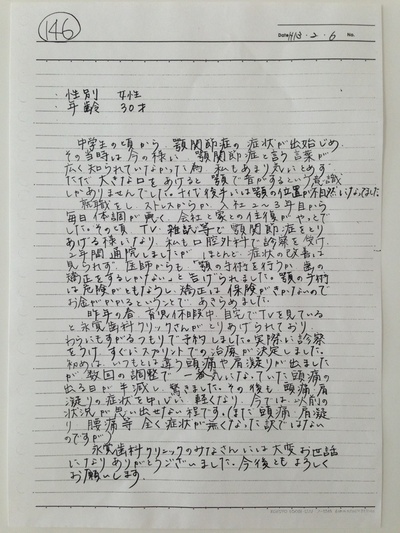 146
Date H13・2・6 No.
・性別 女性
・年齢 30才
中学生の頃から、顎関節症の症状が出始め、
その当時は今の様に、顎関節症と言う言葉が
広く知られていなかった為、私もあまり気にとめず
ただ、大きな口をあけると顎で音がするという意識
しかありませんでした。十代後半には顎の位置が不自然になってました
就職をし、ストレスからか、入社2〜3年目から
毎日体調が悪く、会社と家との往復がやっとで
した。その頃TV、雑誌等で顎関節症をとり
あげる様になり、私も口腔外科で診察を受け、
2年間通院しましたが、ほとんど症状の改善は
見られず、医師からも「顎の手術を行うか歯の
矯正をするしかない」と告げられました。顎の手術
は危険がともなうし、矯正は保険がきかないので
お金がかかるということで、あきらめました。
昨年の春、育児休暇中、自宅でTVを見ている
と永覚歯科クリニックさんがとりあげられており
わらにもすがるつもりで予約しました。実際に診察
をうけ、すぐにスプリントでの治療が決定しました。
初めは、いつもとは違う頭痛や肩凝りが出ました
が、数回の調整で、一番気になっていた頭痛の
出る日が半減し、驚きました。その後も、頭痛、肩
凝りの症状を中心に軽くなり、今では以前の
状況が思い出せない程です。(まだ頭痛、肩凝
り、腰痛等、全く症状が無くなった訳ではない
のですが)
歯科クリニックのみなさんには大変お世話
になりありがとうございました。今後ともよろしく
お願いします。